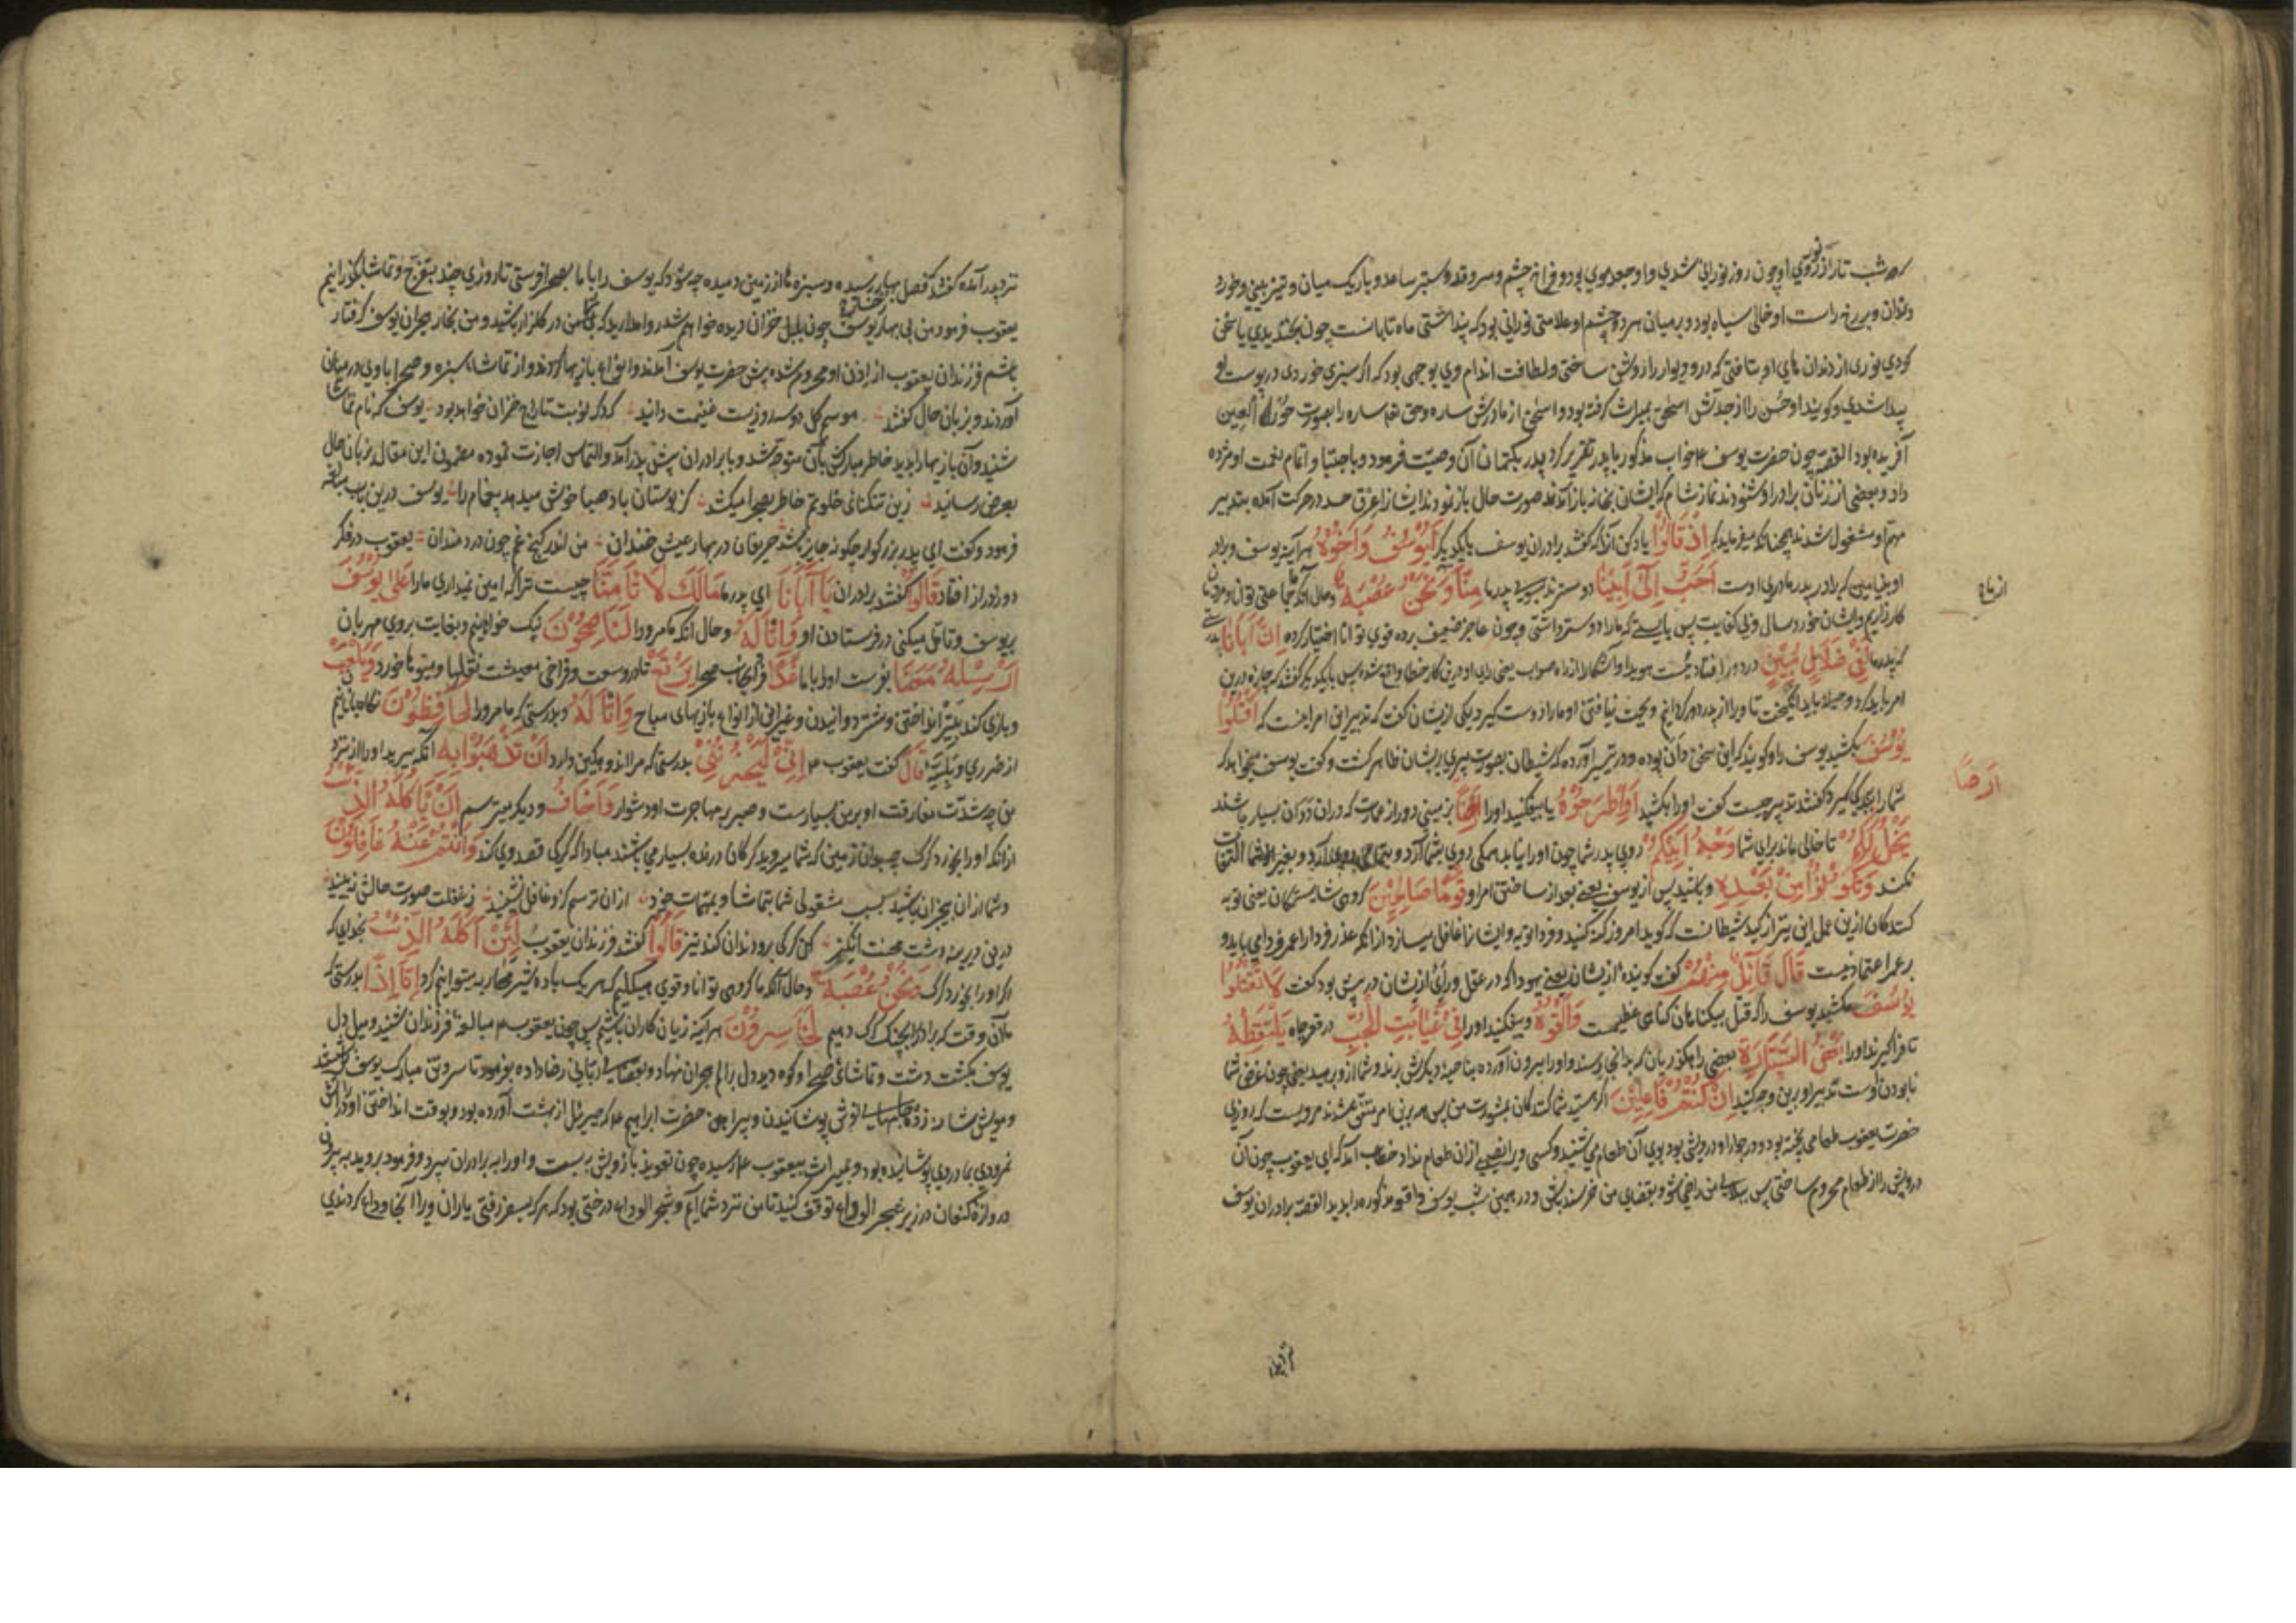 که شب تار از نور روی او چون روز نورانی شدی و او جعد موی بود و فراخ چشم و سرو قد و ستبر ساعد و باریک میان و تیز بینی و خورد
دندان و بر رخ راست او خالی سیاه بود و بر میان هر دو چشم او علامتی نورانی بود که پنداشتی ماه تابانست چون بخندیدی یا سخن
کردی نوری از دندان های او بتافتی که در و دیوار را روشن ساختی و لطافت اندام وی بوجهی بود که اگر سبزی خوردی در پوست او
پیدا شدی و گویند او حسن را از جدش اسحق بمیراث گرفته بود و اسحق از مادرش ساره و حق تع ساره را بصورت حور العین
آفریده بود القصه چون حضرت یوسف ع خواب مذکور با پدر تقریر کرد پدر بکتمان آن وصیت فرمود و باجتبا و اتمام نعمت او مژده
داد و بعضی از زنان برادر او شنودند نماز شام که ایشان بخانه باز آمدند صورت حال باز نمودند ایشانرا عرق حسد در حرکت آمده بتدبیر
مهم او مشغول شدند چنانکه میفرماید که اِذْ قَالُوْا یاد کن آنرا که گفتند برادران یوسف با یکدیگر لَیُوْسُفُ وَاَخُوْهُ هر آینه یوسف و برادر
او بنیامین که برادر پدر مادری اوست اَحَبُّ اِلٰی اَبِیْنَا دوسترند بسوی پدر ما مِنَّا وَنَحْنُ عُصْبَةٌ و حال آنکه ما جماعتی توانا و مردان
کارگذاریم و ایشان خورد سال و بی کفایت پس بایستی که ما را دوستر داشتی و چون عاجز ضعیف بر ده قوی توانا اختیار کرده اِنَّ اَبَانَا بدرستی
که پدر ما لَفِیْ ضَلَالٍ مُبِیْنٍ در دور افتادنیست هویدا و آشکارا از راه صواب یعنی رای او درین کار خطا واقع شده پس با یکدیگر گفتند که چاره درین
امر باید کرد و حیله باید انگیخت تا ویرا از پدر دور گردانیم و محبت نیافتنی او ما را دوست گیرد یکی ازیشان گفت که تدبیر این امر اینست که اُقْتُلُوْا
یُوْسُفَ بکشید یوسف را و گویند که این سخن دان بوده و در تیسیر آورده که شیطان بصورت پیری بریشان ظاهر گشت و گفت یوسف میخواهد که
شما را ببندگی گیرد گفتند تدبیر چیست گفت او را بکشید اَوِ اطْرَحُوْهُ یا بیفگنید او را اَرْضًا بزمینی دور از عمارت که دران ددکان بسیار باشند
یَخْلُ لَکُمْ تا خالی ماند برای شما وَجْهُ اَبِیْکُمْ روی پدر شما چون او را نیابد همگی روی بشما آرد و بغیر از شما التفات
نکند وَتَکُوْنُوْا مِنْ بَعْدِهٖ و باشید پس از یوسف یعنی بعد از ساختن امر او قَوْمًا صَالِحِیْنَ گروهی شایستگان یعنی توبه
کنندگان ازین عمل این نیز از کید شیطانست که گوید امروز گنه کنید و فردا توبه و ایشانرا غافل میسازد از آنکه عذر فردا را عمر فردا می باید و
بر عمر اعتماد نیست قَالَ قَآئِلٌ مِنْهُمْ گفت گوینده ازیشان یعنی یهودا که در عقل و رای ازیشان در پیش بود گفت لَا تَقْتُلُوْا
یُوْسُفَ مکشید یوسف را که قتل بیگناهان گناهی عظیمست وَاَلْقُوْهُ و بیفگنید او را فِیْ غَیَابَتِ الْجُبِّ در قعر چاه یَلْتَقِطْهُ
تا فرا گیرند او را بَعْضُ السَّیَّارَةِ بعضی راهگذریان که بدانجا رسند و او را بیرون آورده بناحیه دیگرش برند و شما ازو برهید یعنی چون غرض شما
نابودن اوست تدبیر او برین وجه کنید اِنْ کُنْتُمْ فَاعِلِیْنَ اگر هستید شما کنندگان بمشورت من پس همه برین امر متفق شدند مرویست که روزی
حضرت یعقوب طعامی پخته بود و در جوار او درویشی بود بوی آن طعام می شنید و کسی ویرا نصیبی ازان طعام نداد خطاب آمد که ای یعقوب چون آن
درویش را از طعام محروم ساختی پس ببلای من راضی شو و بقضای من خرسند باش و در همین شب یوسف واقعه مذکوره را بدید القصه برادران یوسف
ارضًا
نزد پدر آمده گفتند که فصل بهار رسیده و سبزه ها از زمین دمیده چه شود که یوسف را با ما بصحرا فرستی تا روزی چند بتفرج و تماشا بگذرانیم
یعقوب فرمود من بی بهار رخساره یوسف چون بلبل خزان دیده خواهم شد روا مدارید که شما بی من در گلزار باشید و من بخار هجران یوسف گرفتار
باشم فرزندان یعقوب از اذن او محروم شده پیش حضرت یوسف آمدند و انواع بازیها کردند و از تماشاء سبزه و صحرا با وی در میان
آوردند و بزبان حال گفتند موسم گل دو سه روزیست غنیمت دانید که دگر نوبت تاراج خزان خواهد بود یوسف که نام تماشا
شنید و آن بازیها را بدید خاطر مبارکش بآن متوجه شد و با برادران پیش پدر آمد و التماس اجازت نموده مضمون این مقال بزبان حال
بعرض رسانید زین تنگنای خلوتم خاطر بصحرا میکشد کز بوستان باد صبا خوش میدهد پیغام را یوسف درین باب مبالغه
فرمود و گفت ای پدر بزرگوار چگونه جایز باشد حریفان در بهار عیش خندان من اندر کنج غم چون دردمندان یعقوب در فکر
دور و دراز افتاد قَالُوْا گفتند برادران یَا اَبَانَا ای پدر ما مَالَکَ لَا تَاْمَنَّا چیست ترا که امین نمیداری ما را عَلٰی یُوْسُفَ
بر یوسف و تامل میکنی در فرستادن او وَاِنَّا لَهٗ و حال آنکه ما مرو را لَنَاصِحُوْنَ نیک خواهیم و بغایت بروی مهربان
اَرْسِلْهُ مَعَنَا بفرست او را با ما غَدًا فردا بجانب صحرا یَرْتَعْ تا در وسعت و فراخی معیشت نقلها و میوها خورد وَیَلْعَبْ
و بازی کند بتیر انداختن و شتر دوانیدن و غیر این از انواع بازیهای مباح وَاِنَّا لَهٗ و بدرستی که ما مرو را لَحَافِظُوْنَ نگاهبانانیم
از ضرری و بلیتی قَالَ گفت یعقوب ع اِنِّیْ لَیَحْزُنُنِیْ بدرستی که مرا اندوهگین دارد اَنْ تَذْهَبُوْا بِهٖ آنکه ببرید او را از نزد
من چه شدت مفارقت او بر من بسیارست و صبر بر مهاجرت او دشوار وَاَخَافُ و دیگر میترسم اَنْ یَاْکُلَهُ الذِّئْبُ
ازانکه او را بخورد گرگ چه دران زمین که شما میروید گرگان درنده بسیار می باشند مبادا که گرگی قصد وی کند وَاَنْتُمْ عَنْهُ غَافِلُوْنَ
و شما ازان بیخبران باشید بسبب مشغولی شما بتماشا و بمهمات خود ازان ترسم کزو غافل نشینید ز غفلت صورت حالش نبینید
درین دیرینه دشت محنت انگیز کهن گرگی برو دندان کند تیز قَالُوْا گفتند فرزندان یعقوب لَئِنْ اَکَلَهُ الذِّئْبُ بخدای که
اگر او را بخورد گرگ وَنَحْنُ عُصْبَةٌ و حال آنکه ما گروهی توانا و قوی هیکلیم که هر یک با ده شیر محاربه میتوانیم کرد اِنَّا اِذًا بدرستی که
ما آن وقت که برادر را بچنگ گرگ دهیم لَخَاسِرُوْنَ هر آینه زیان کاران باشیم پس چون یعقوب ع مبالغه فرزندان شنید و میل دل
یوسف بگشت دشت و تماشای صحرا و کوه دید دل را بالم هجران نهاد و بقضای ربانی رضا داده بفرمود تا سر و تن مبارک یوسف بشستند
و مویش شانه زد و جامهای نوش پوشانیدن و پیراهن حضرت ابراهیم ع که جبرئیل از بهشت آورده بود و بوقت انداختن او در آتش
نمرودی بدو پوشانیده بود و بمیراث بیعقوب ع رسیده چون تعویذ بر بازویش بست و او را به برادران سپرد و فرمود بروید به بیرون
دروازه کنعان در زیر شجر الوداع توقف کنید تا من نزد شما آیم و شجر الوداع درختی بود که هر که بسفر رفتی یاران ویرا آنجا وداع کردندی